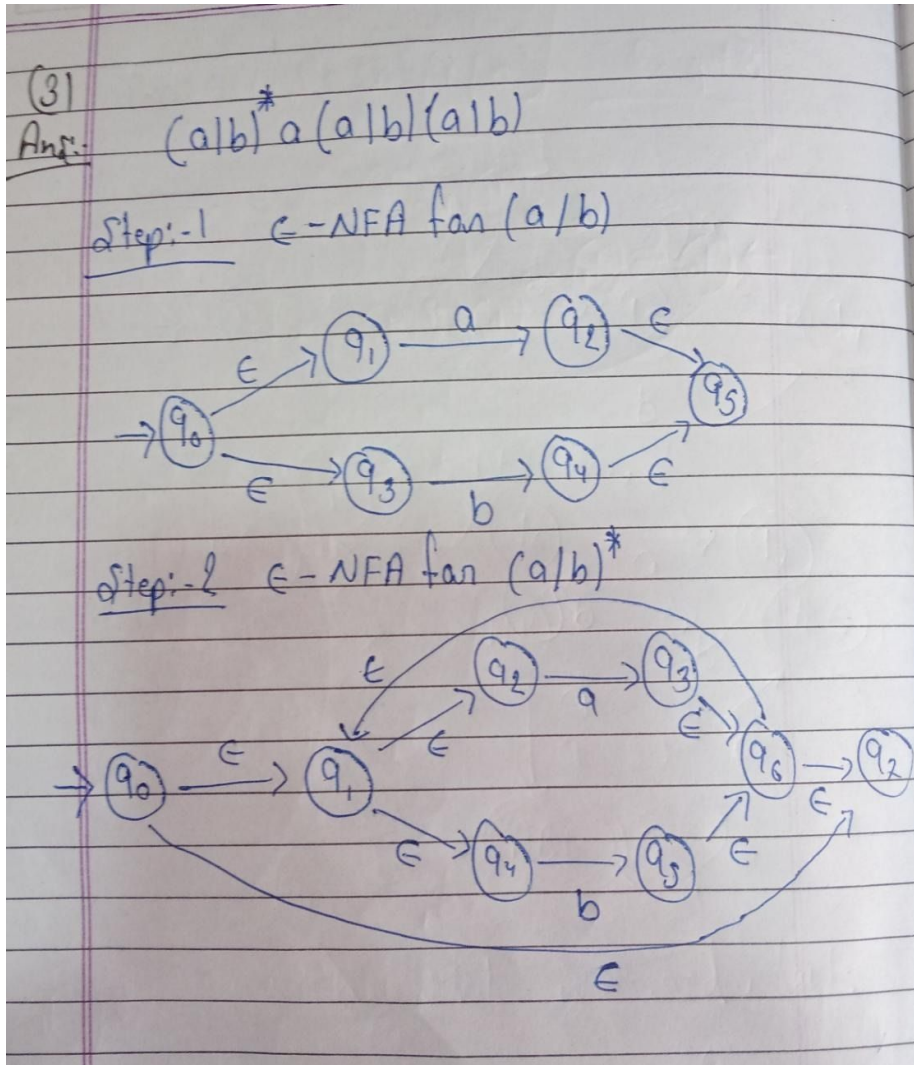 (3)
Ans:- (a|b)* a (a|b) (a|b)
Step:-1 ε-NFA for (a/b)
q1 a q2 ε
ε q5
q0
ε q3 b q4 ε
Step:-2 ε-NFA for (a/b)*
ε q2 a q3
ε ε
q0 ε q1 q6 ε q7
ε q4 b q5 ε
ε